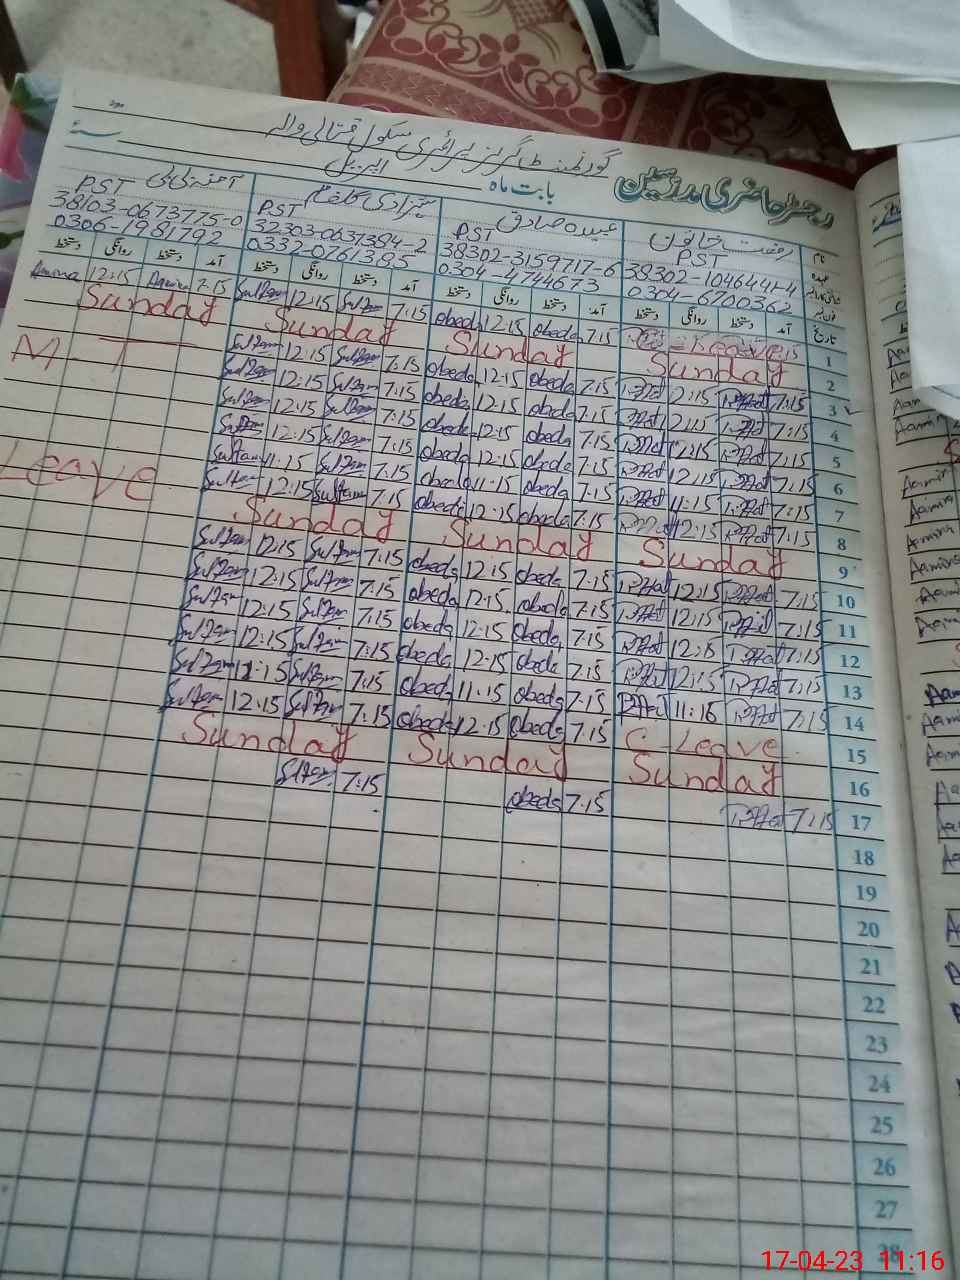 گورنمنٹ گرلز پرائمری سکول
رجسٹر حاضری مدرسین بابت ماہ اپریل سنہ
رفعت خاتون عبیدہ صادق شہزادی گلفام آمنہ بی بی
PST PST PST PST
38302-1046441-4 38302-3159717-6 32303-0637384-2 38103-0673775-0
0304-6700362 0304-4744673 0332-0761385 0306-1981792
نام
عہدہ
تاریخ آمد دستخط روانگی دستخط آمد دستخط روانگی دستخط آمد دستخط روانگی دستخط آمد دستخط روانگی دستخط
1 Leave 7:15 obeda 12:15 obeda 7:15 Sultan 12:15 Sultan 7:15 Amina 12:15 Amina
2 Sunday Sunday Sunday Sunday
3 7:15 Riffat 12:15 Riffat 7:15 obeda 12:15 obeda 7:15 Sultan 12:15 Sultan M
4 7:15 Riffat 12:15 Riffat 7:15 obeda 12:15 obeda 7:15 Sultan 12:15 Sultan
5 7:15 Riffat 12:15 Riffat 7:15 obeda 12:15 obeda 7:15 Sultan 12:15 Sultan
6 7:15 Riffat 12:15 Riffat 7:15 obeda 12:15 obeda 7:15 Sultan 12:15 Sultan
7 7:15 Riffat 11:15 Riffat 7:15 obeda 11:15 obeda 7:15 Sultan 11:15 Sultan Leave
8 7:15 Riffat 12:15 Riffat 7:15 obeda 12:15 obeda 7:15 Sultan 12:15 Sultan
9 Sunday Sunday Sunday
10 7:15 Riffat 12:15 Riffat 7:15 obeda 12:15 obeda 7:15 Sultan 12:15 Sultan
11 7:15 Riffat 12:15 Riffat 7:15 obeda 12:15 obeda 7:15 Sultan 12:15 Sultan
12 7:15 Riffat 12:15 Riffat 7:15 obeda 12:15 obeda 7:15 Sultan 12:15 Sultan
13 7:15 Riffat 12:15 Riffat 7:15 obeda 12:15 obeda 7:15 Sultan 12:15 Sultan
14 7:15 Riffat 11:15 Riffat 7:15 obeda 11:15 obeda 7:15 Sultan 11:15 Sultan
15 C-Leave 7:15 obeda 12:15 obeda 7:15 Sultan 12:15 Sultan
16 Sunday Sunday Sunday
17 7:15 Riffat 7:15 obeda 7:15 Sultan
18
19
20
21
22
23
24
25
26
27
28
17-04-23 11:16